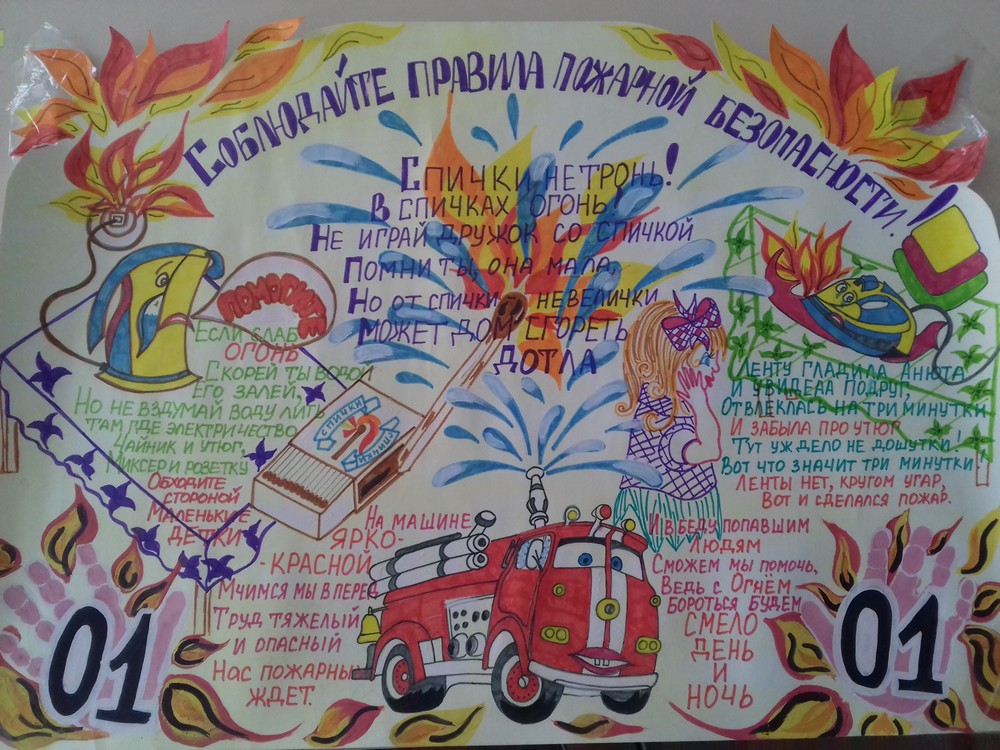 Соблюдайте правила пожарной безопасности!
Спички не тронь!
В спичках огонь!
Не играй дружок со спичкой
Помни ты, она мала,
Но от спички невелички
может дом сгореть
дотла
помогите
Если слаб
огонь
Скорей ты водой
его залей,
Но не вздумай воду лить
там где электричество
Чайник и утюг,
Миксер и розетку
Обходите
стороной
Маленькие
детки
спички
Ленту гладила Анюта
и увидела подруг,
Отвлеклась на три минутки
И забыла про утюг
Тут уж дело не дошутки!
Вот что значит три минутки!
Ленты нет, кругом угар,
Вот и сделался пожар.
На машине
ярко-
-красной
Мчимся мы в перед
Труд тяжелый
и опасный
Нас пожарны
ждет.
И в беду попавшим
людям
Сможем мы помочь,
Ведь с огнём
бороться будем
смело
день
и
ночь
01
01